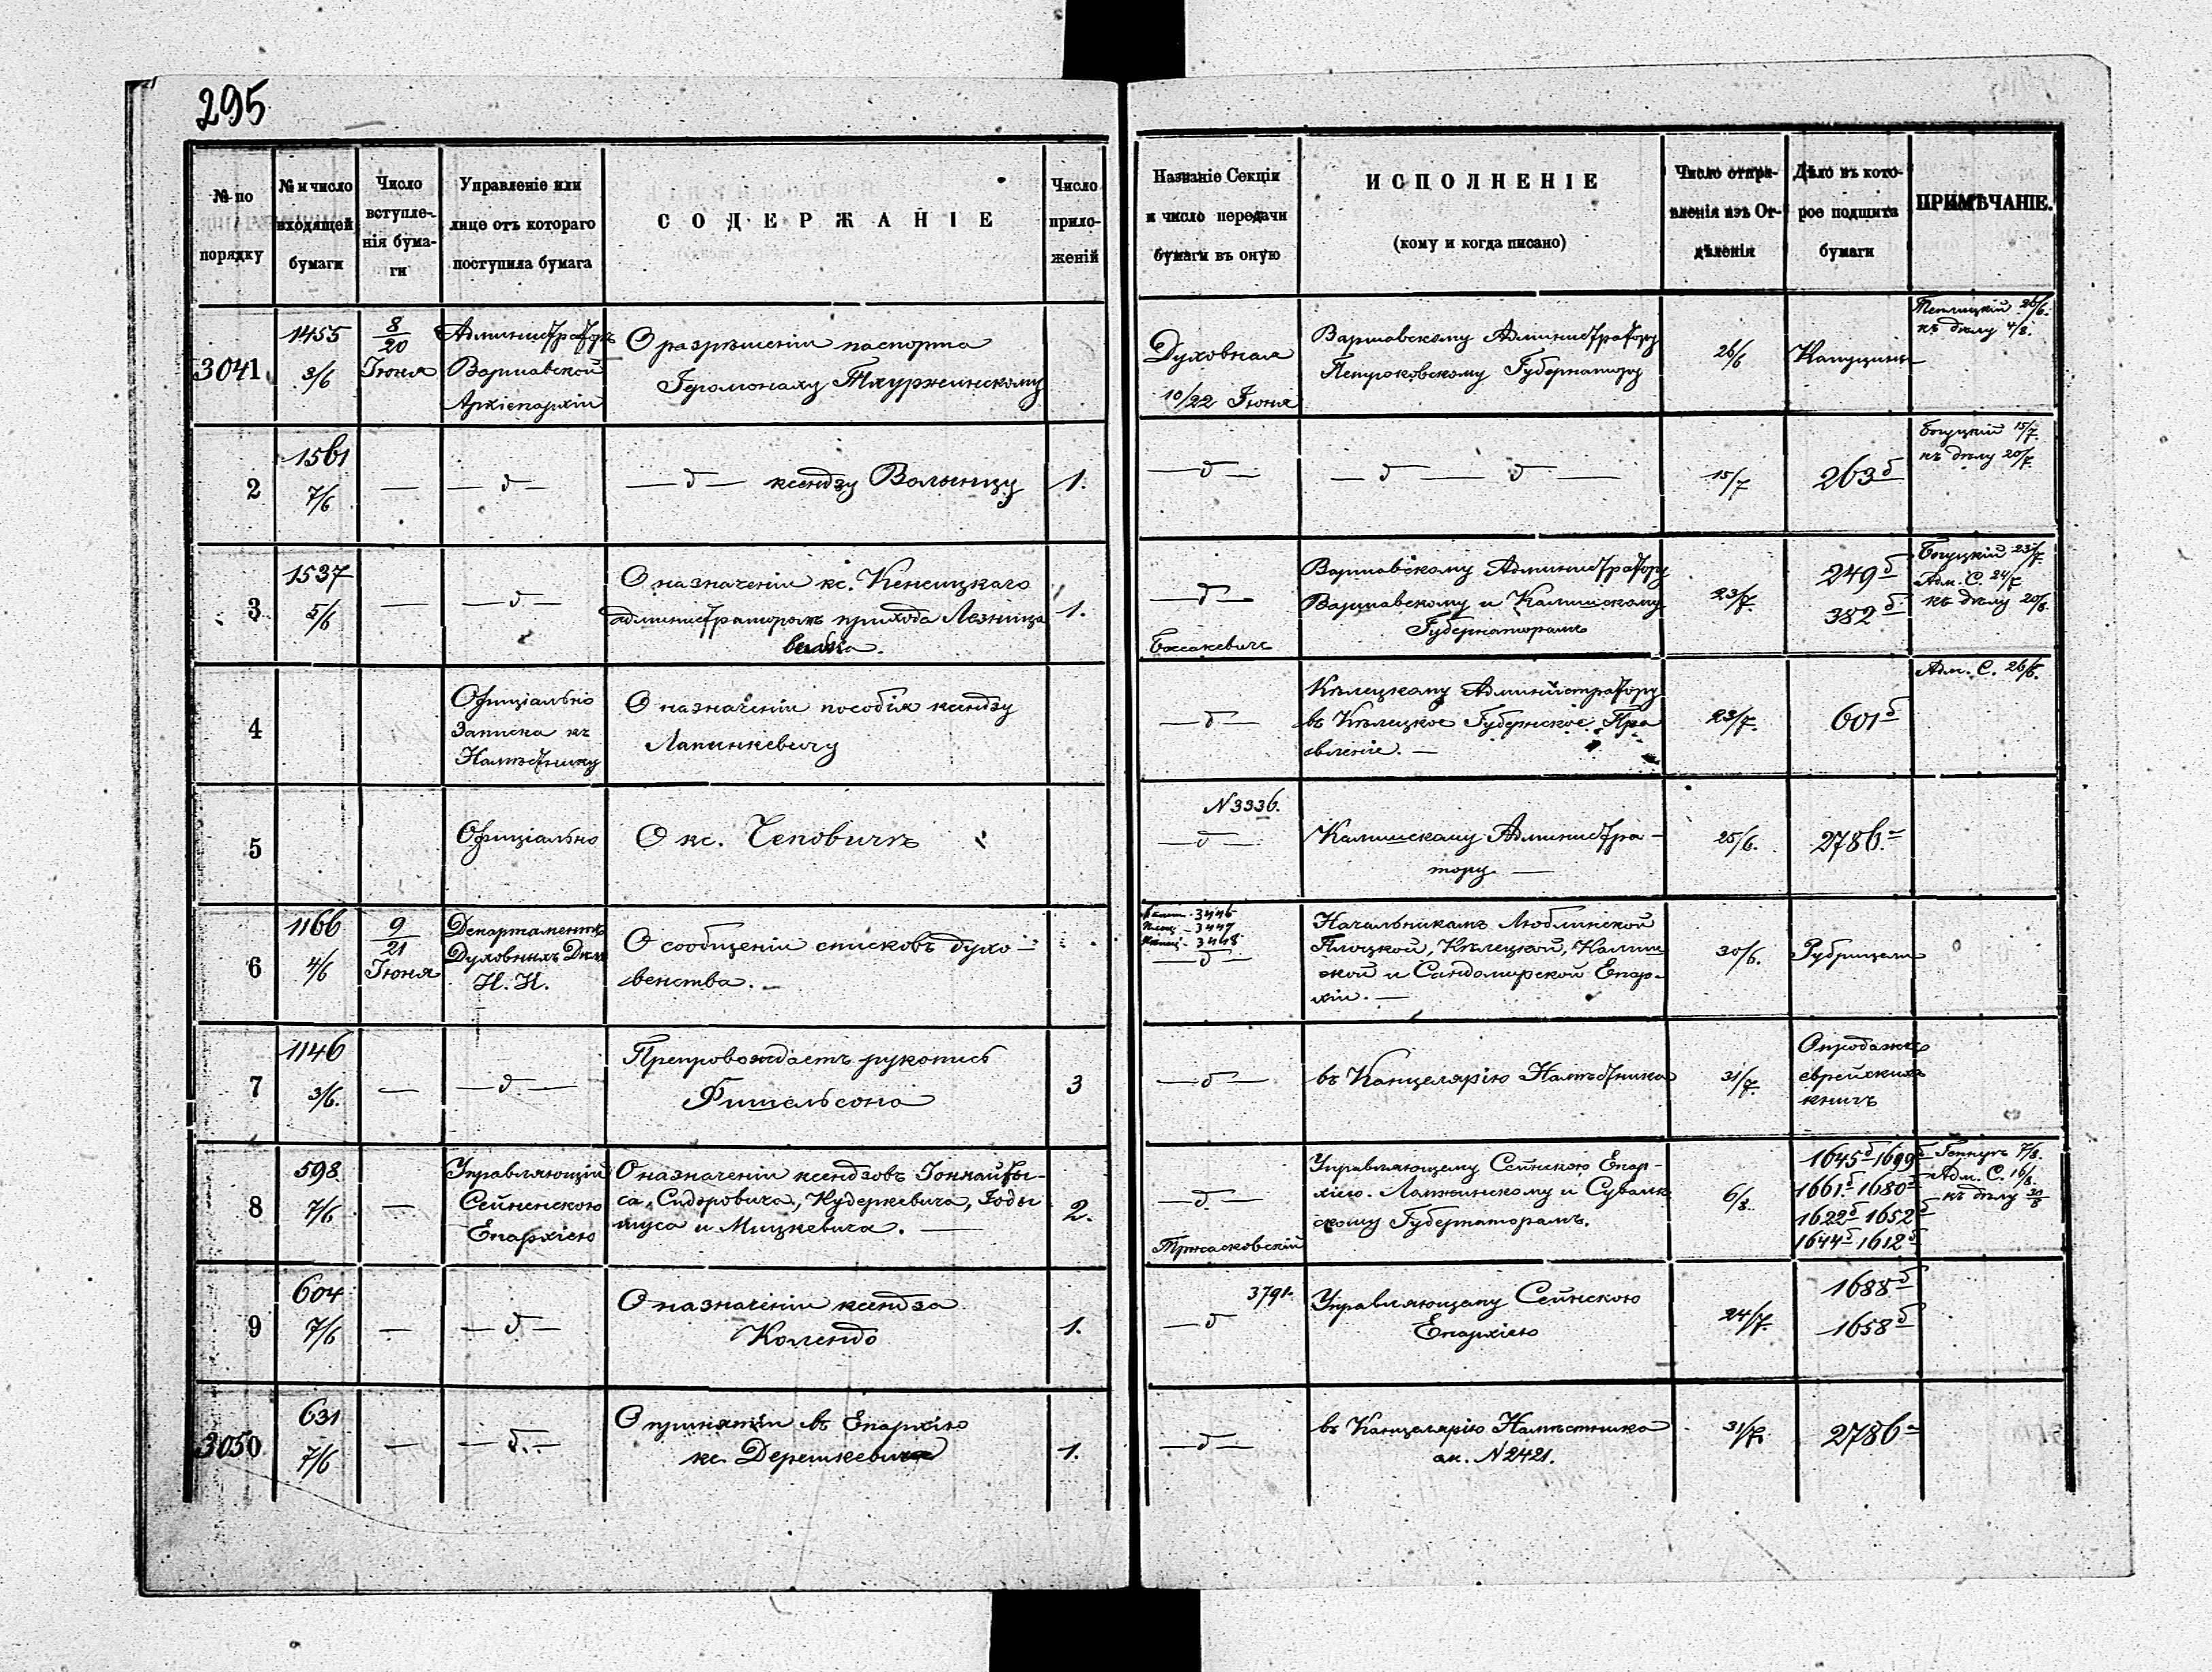 295
№ по порядку
№ и число входящей бумаги
Число вступле-нія бума-ги
Управленіе или лице отъ котораго поступила бумага
СОДЕРЖАНІЕ
Число прило-женій
Названіе Секціи и число передачи бумаги въ оную
ИСПОЛНЕНІЕ
(кому и когда писано)
Число отпра-вленія изъ От-дѣленія
Дѣло въ кото-рое подшита бумаги
ПРИМѢЧАНІЕ.
3041
1455
3/6
8/20 Іюня
Администраторъ
Варшавской
Архіепархіи
О разрѣшеніи паспорта
Іеромонаху
Духовная
10/22 Іюня
Варшавскому Администратору
Петроковскому Губернатору
26/6
Капуцины
26/6.
къ дѣлу 4/8.
2
1561
7/6
—
— д —
— д — ксендзу Волынцу
1.
— д —
— д — д —
15/7
263 б
Богуцкій 15/7.
къ дѣлу 20/7.
3
1537
5/6
—
— д —
О назначеніи кс. Кенсицкаго
администраторомъ прихода Лезница
велька.
1.
— д —
Варшавскому Администратору
Варшавскому и Калишскому
Губернаторамъ
23/7.
249 б
382 б
Богуцкій 23/7.
Адм. С. 24/7
къ дѣлу 20/8.
4
Официально
Записка къ
Намѣстнику
О назначеніи пособія ксендзу
Лапинкевичу
— д —
Кѣлецкому Администратору
въ Кѣлецкое Губернское Пра
вленіе. —
23/7.
601 б
Адм. С. 26/8.
5
Официально
О кс. Чеповичѣ
N 3336.
— д —
Калишскому Администра-
тору —
25/6.
2786 а
6
1166
4/6
9/21 Іюня
Департаментъ
Духовныхъ Дѣлъ
И. И.
О сообщеніи списковъ духо-
венства. —
3446
3447
3448
— д —
Начальникамъ Люблинской
Плоцкой, Кѣлецкой, Калиш
ской и Сандомирской Епар-
хіи. —
30/6.
Рубрицели
7
1146
3/6.
—
— д —
Препровождаетъ рукопись
Фишельсона
3
— д —
въ Канцелярію Намѣстника
31/7.
О продажѣ
еврейскихъ
книгъ
8
598
7/6
—
Управляющій
Сейненскою
Епархіею
О назначеніи ксендзовъ Іонкайты-
са, Сидоровича, Кудеркевича, Іоды
шуса и Мицкевича. —
2.
— д —
Управляющему Сейнскою Епар-
хіею. Ломжинскому и Сувалк
скому Губернаторамъ.
6/8.
1645 б 1699 б
1661 б 1680 б
1622 б 1652 б
1644 б 1612 б
7/8.
Адм. С. 16/8.
къ дѣлу 30/8
9
604
7/6
—
— д —
О назначеніи ксендза
Колендо
1.
3791.
— д
Управляющему Сейнскою
Епархіею
24/7.
1688 б
1658 б
3050
631
7/6
—
— д. —
О принятіи въ Епархію
кс. Дерешкевича
1.
— д —
въ Канцелярію Намѣстника
ак. N 2421.
31/7.
2786 а